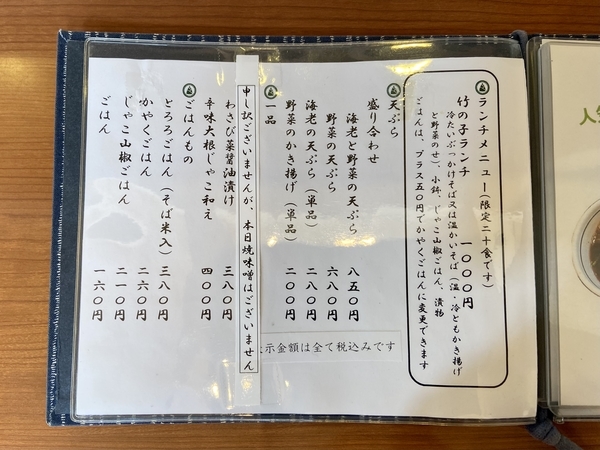 ランチメニュー(限定二十食です)
竹の子ランチ 一〇〇〇円
冷たいぶっかけそば又は温かいそば(温・冷ともかき揚げ
と野菜のせ)、小鉢、じゃこ山椒ごはん、漬物
ごはんは、プラス五〇円でかやくごはんに変更できます
天ぷら
盛り合わせ
海老と野菜の天ぷら 八五〇円
野菜の天ぷら 六八〇円
海老の天ぷら(単品) 二八〇円
野菜のかき揚げ(単品) 二〇〇円
一品
申し訳ございませんが、本日焼味噌はございません
わさび菜醤油漬け 三八〇円
辛味大根じゃこ和え 四〇〇円
ごはんもの
とろろごはん(そば米入) 三八〇円
かやくごはん 二六〇円
じゃこ山椒ごはん 二一〇円
ごはん 一六〇円
示金額は全て税込みです
人気